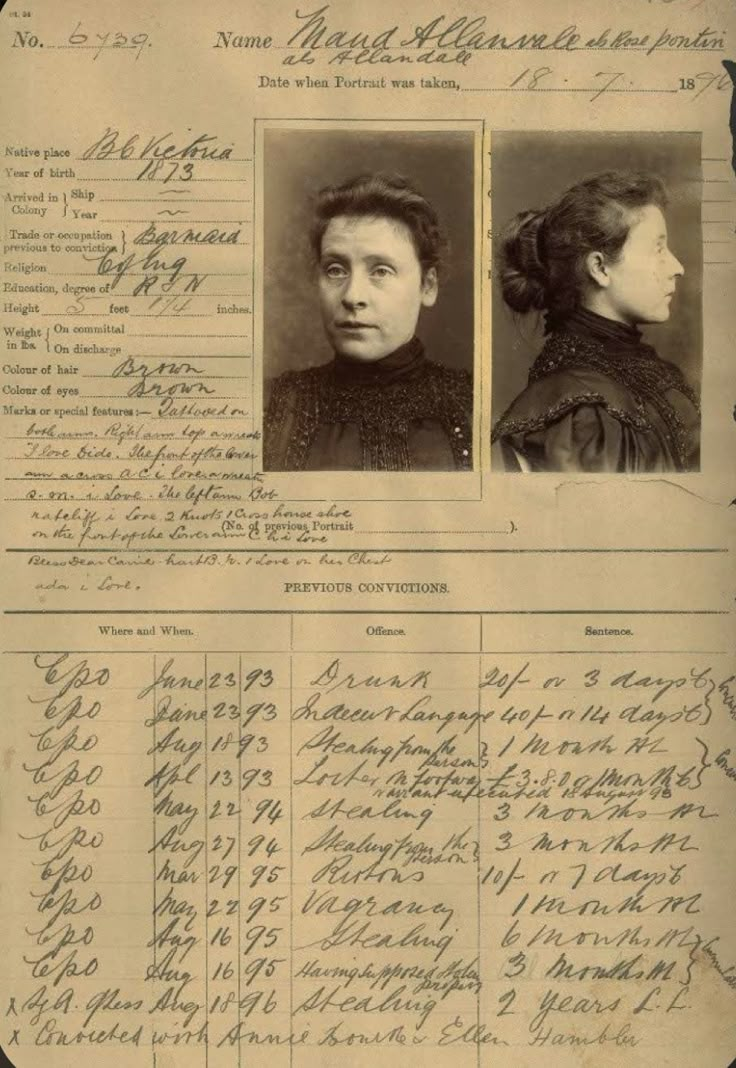 No. 6739.
Name Maud Allanvale als Rose Pontin
als Allandale
Date when Portrait was taken, 18 . 7 . 1896
Native place Bb Victoria
Year of birth 1873
Arrived in Colony { Ship ~
Year ~
Trade or occupation previous to conviction } Barmaid
Religion C of Eng
Education, degree of R & W
Height 5 feet 1 1/4 inches.
Weight in lbs. { On committal
On discharge
Colour of hair Brown
Colour of eyes Brown
Marks or special features:— Tattooed on
both arms. Right arm top a wreath
I love Dido. The front of the lower
arm a cross A C i love a wreath
S. M. i Love. The left arm Bob
ratcliff i Love 2 Knots 1 Cross house shoe
(No. of previous Portrait ).
on the front of the Lower arm C H i Love
Bless Dear Carrie hart B. 1 Love on her Chest
ada i Love.
PREVIOUS CONVICTIONS.
Where and When. Offence. Sentence.
Cpo June 23 93 Drunk 20/- or 3 days
Cpo June 23 93 Indecent Language 40/- or 14 days
Cpo Aug 18 93 Stealing from the person 1 Month HL
Cpo Apl 13 93 Loiter on footway £3.8.0 or 1 Month
warrant executed 18 August 93
Cpo May 22 94 Stealing 3 Months HL
Cpo Aug 27 94 Stealing from the person 3 Months HL
Cpo Mar 29 95 Riotous 10/- or 7 days
Cpo May 22 95 Vagrancy 1 Month HL
Cpo Aug 16 95 Stealing 6 Months HL
Cpo Aug 16 95 Having supposed stolen property 3 Months HL
x Aug 18 96 Stealing 2 Years L.L.
x Convicted with Annie & Ellen Hambler